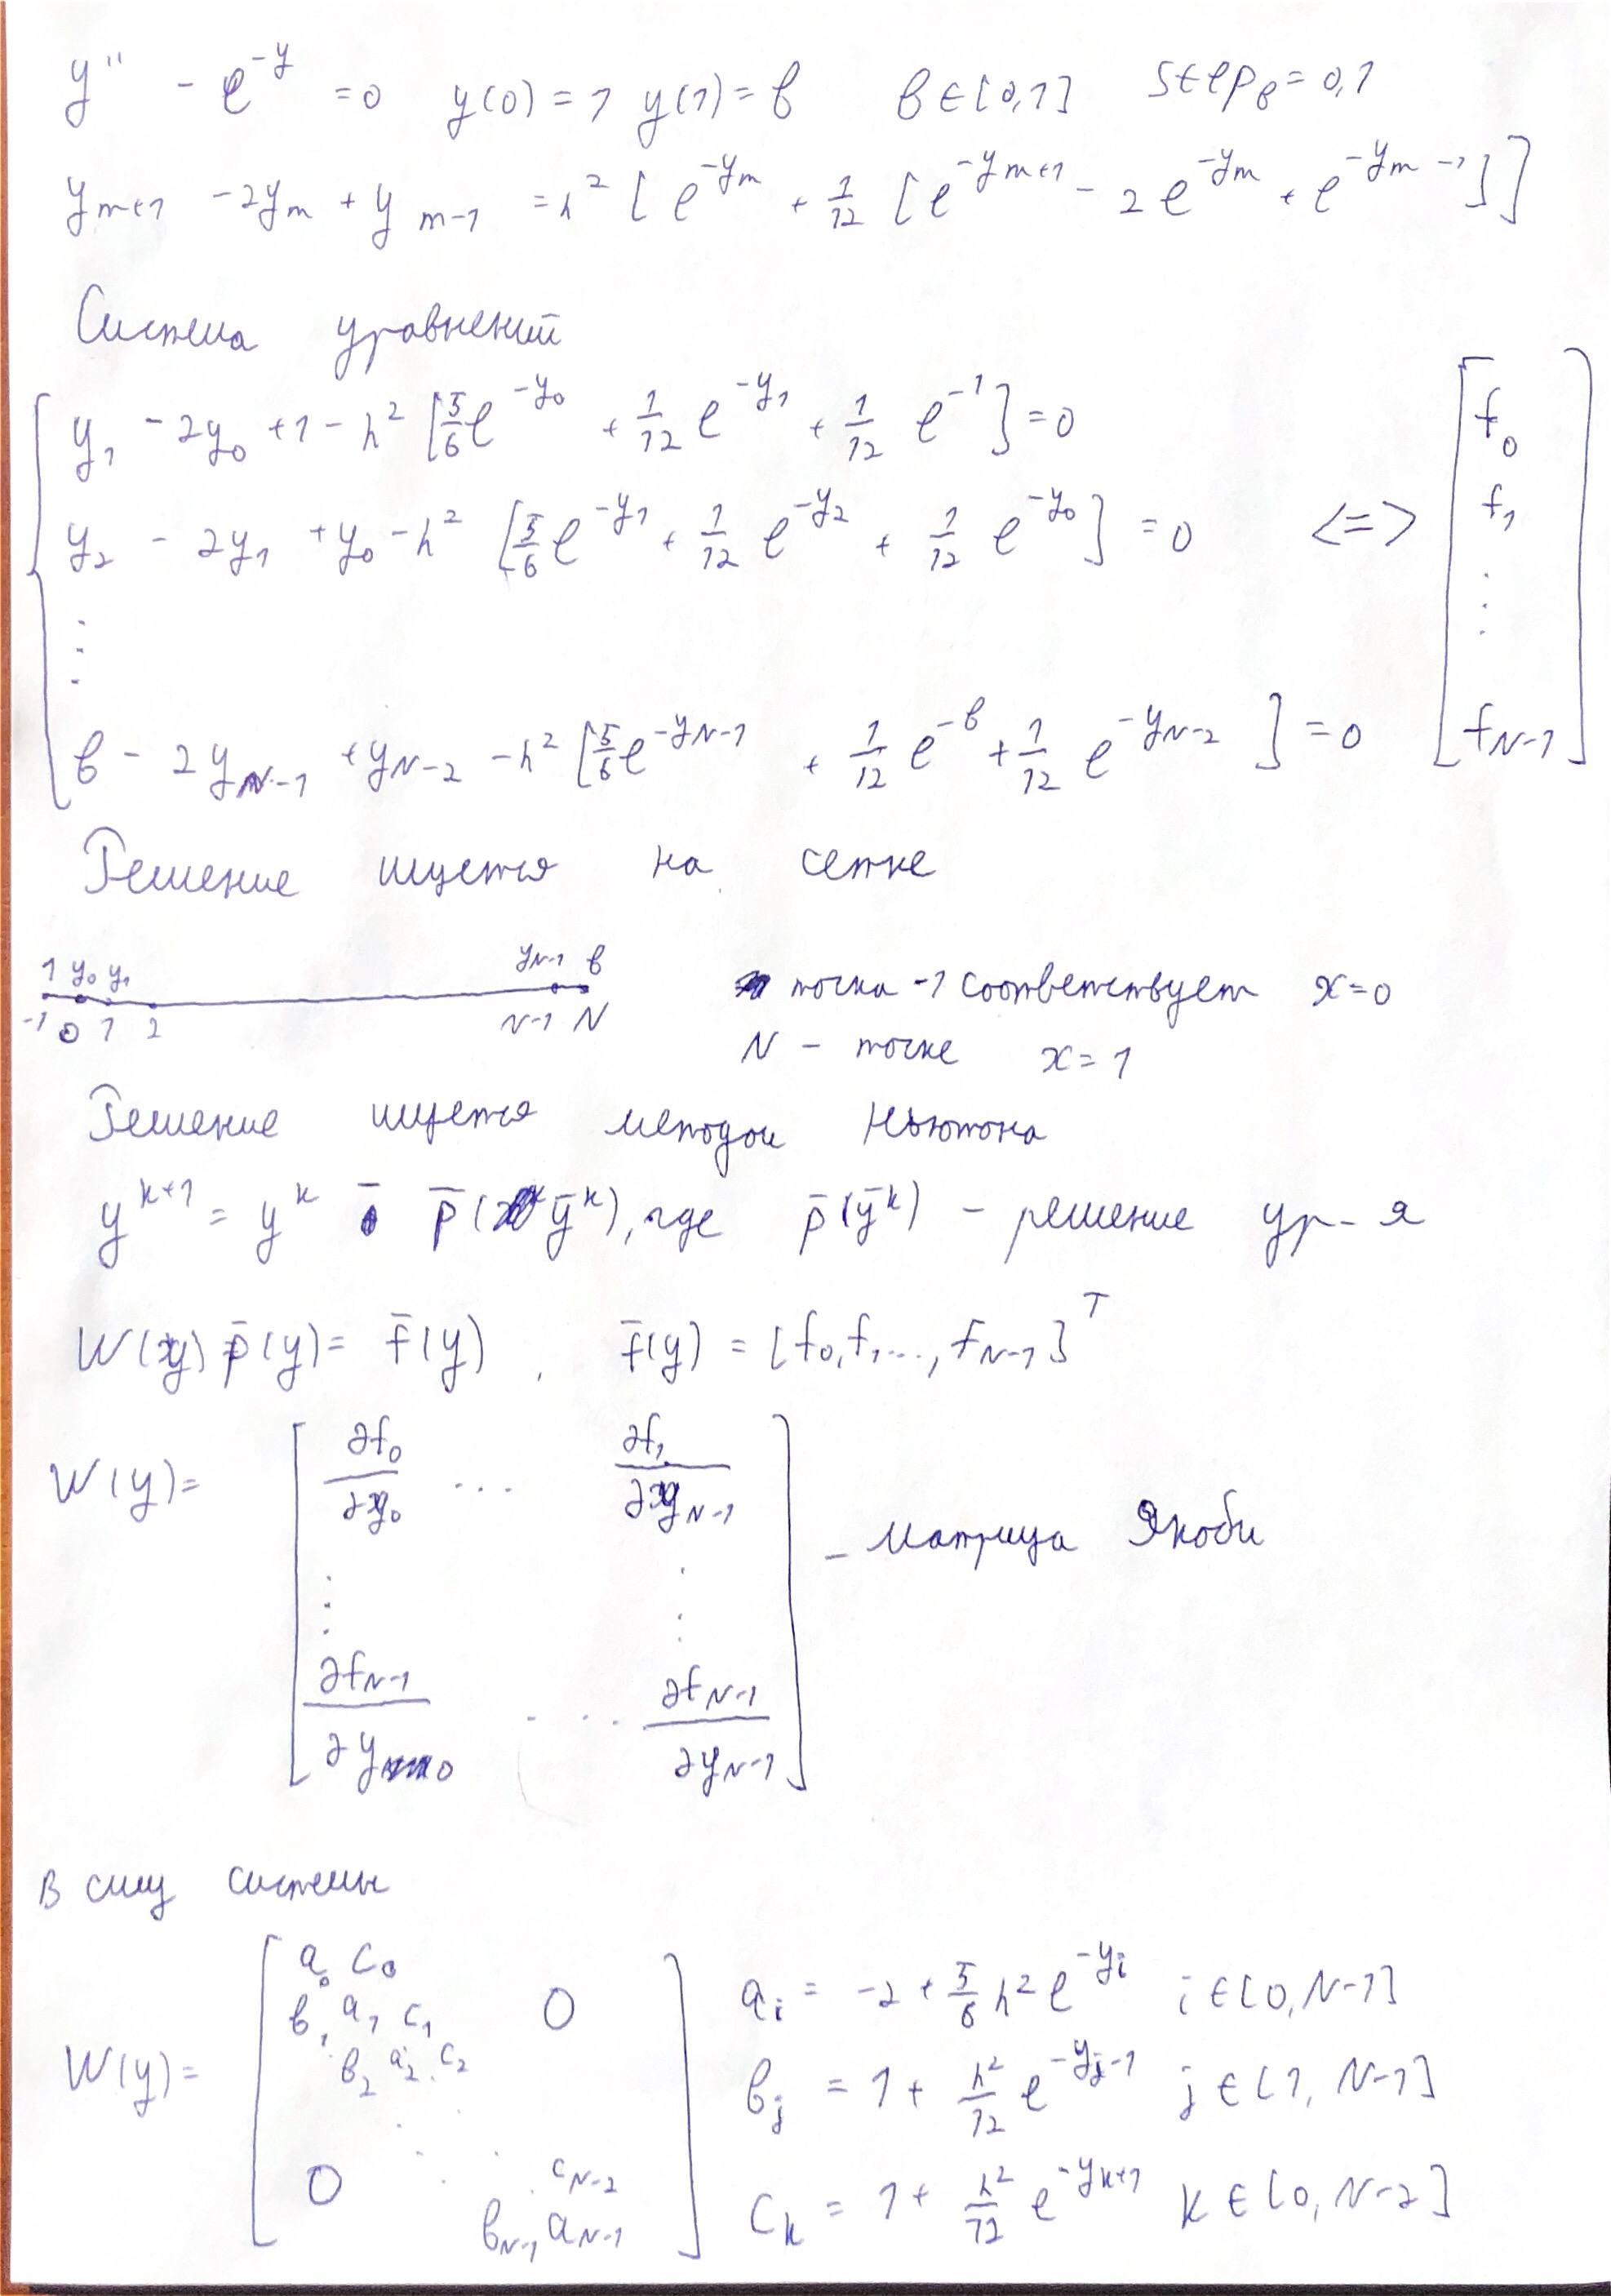 y'' - e^{-y} = 0 y(0) = 1 y(1) = b b ∈ [0,1] step_b = 0,1
y_{m+1} - 2y_m + y_{m-1} = h^2 [e^{-y_m} + 1/12 [e^{-y_{m+1}} - 2e^{-y_m} + e^{-y_{m-1}}]]
Система уравнений
y_1 - 2y_0 + 1 - h^2 [5/6 e^{-y_0} + 1/12 e^{-y_1} + 1/12 e^{-1}] = 0
y_2 - 2y_1 + y_0 - h^2 [5/6 e^{-y_1} + 1/12 e^{-y_2} + 1/12 e^{-y_0}] = 0 <=> [f_0 f_1 ⋮ f_{N-1}]
⋮
b - 2y_{N-1} + y_{N-2} - h^2 [5/6 e^{-y_{N-1}} + 1/12 e^{-b} + 1/12 e^{-y_{N-2}}] = 0
Решение ищется на сетке
1 y_0 y_1 y_{N-1} b
-1 0 1 2 N-1 N
точка -1 соответствует x=0
N - точке x=1
Решение ищется методом Ньютона
y^{k+1} = y^k - p̄(ȳ^k), где p̄(ȳ^k) - решение ур-я
W(y) p̄(y) = f̄(y), f̄(y) = [f_0, f_1 ..., f_{N-1}]^T
W(y) = [∂f_0/∂y_0 ... ∂f_1/∂y_{N-1}
⋮ ⋮
∂f_{N-1}/∂y_0 ... ∂f_{N-1}/∂y_{N-1}] - Матрица Якоби
В силу системы
W(y) = [a_0 c_0
b_1 a_1 c_1 0
b_2 a_2 c_2
0 c_{N-2}
b_{N-1} a_{N-1}]
a_i = -2 + 5/6 h^2 e^{-y_i} i ∈ [0, N-1]
b_j = 1 + h^2/12 e^{-y_{j-1}} j ∈ [1, N-1]
c_k = 1 + h^2/12 e^{-y_{k+1}} k ∈ [0, N-2]